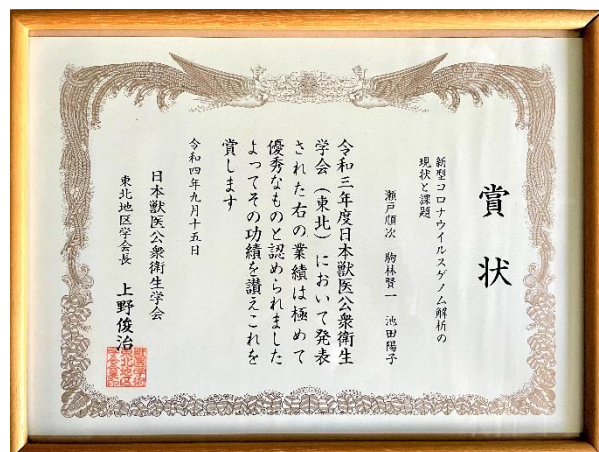 賞状
新型コロナウイルスゲノム解析の
現状と課題
瀬戸順次 駒林賢一 池田陽子
令和三年度日本獣医公衆衛生
学会（東北）において発表
された右の業績は極めて
優秀なものと認められました
よってその功績を讃えこれを
賞します
令和四年九月十五日
日本獣医公衆衛生学会
東北地区学会長 上野俊治